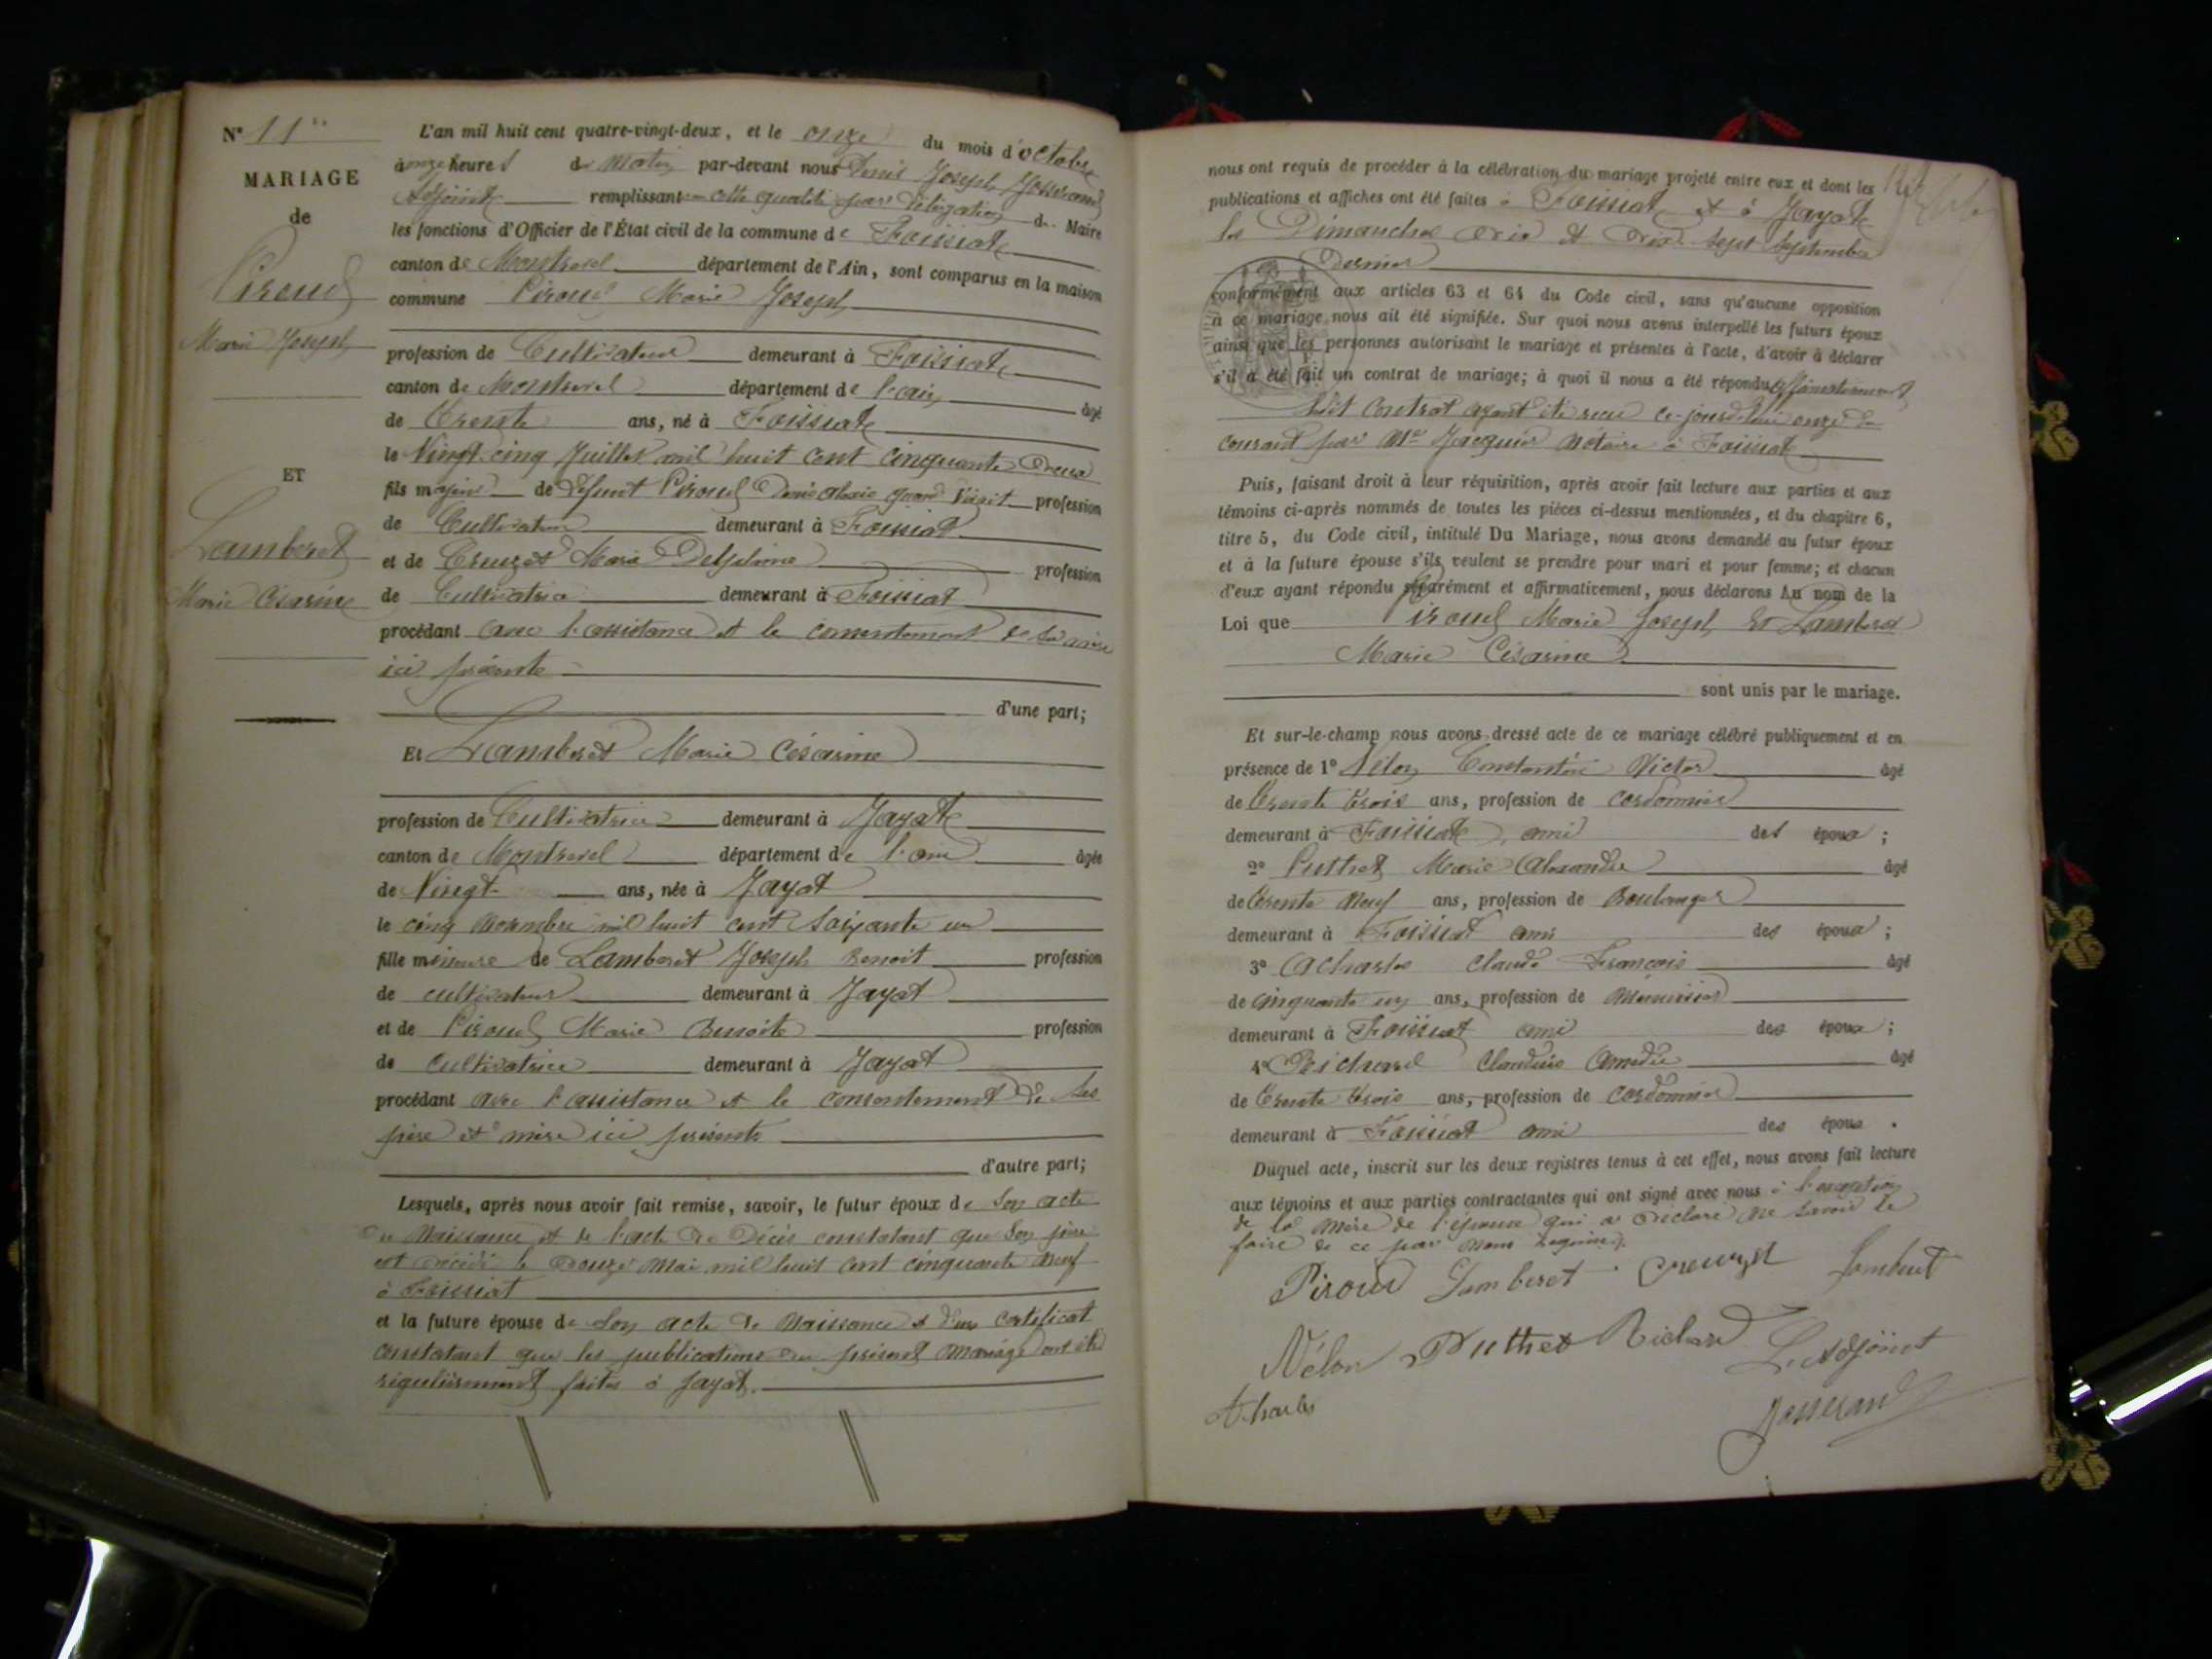 N° 11
MARIAGE
de
Piroud
Marie Joseph
ET
Lamberet
Marie Césarine
L'an mil huit cent quatre-vingt-deux, et le onze du mois d'octobre
à onze heures du Matin par-devant nous Denis Joseph Josserand
Adjoint remplissant cette qualité par délégation du Maire
les fonctions d'Officier de l'État civil de la commune de Foissiat
canton de Montrevel département de l'Ain, sont comparus en la maison
commune Piroud Marie Joseph
profession de Cultivateur demeurant à Foissiat
canton de Montrevel département de l'ain âgé
de Trente ans, né à Foissiat
le Vingt cinq Juillet mil huit cent cinquante deux
fils majeur de défunt Piroud Denis alexis quand vivait profession
de Cultivateur demeurant à Foissiat
et de Creuzet Marie Delphine profession
de Cultivatrice demeurant à Foissiat
procédant avec l'assistance et le consentement de sa mère
ici présente
d'une part;
Et Lamberet Marie Césarine
profession de Cultivatrice demeurant à Jayat
canton de Montrevel département de l'ain âgée
de Vingt ans, née à Jayat
le cinq Novembre mil huit cent soixante un
fille mineure de Lamberet Joseph Benoit profession
de cultivateur demeurant à Jayat
et de Piroud Marie Benoite profession
de Cultivatrice demeurant à Jayat
procédant avec l'assistance et le consentement de ses
père et mère ici présents
d'autre part;
Lesquels, après nous avoir fait remise, savoir, le futur époux de son acte
de Naissance et de l'acte de Décès constatant que son père
est décédé le douze Mai mil huit cent cinquante neuf
à Foissiat
et la future épouse de son acte de Naissance & d'un certificat
constatant que les publications du présent mariage ont été
régulièrement faites à Jayat.
nous ont requis de procéder à la célébration du mariage projeté entre eux et dont les
publications et affiches ont été faites à Foissiat et à Jayat
les Dimanches dix et dix sept Septembre
Dernier
conformément aux articles 63 et 64 du Code civil, sans qu'aucune opposition
à ce mariage nous ait été signifiée. Sur quoi nous avons interpellé les futurs époux
ainsi que les personnes autorisant le mariage et présentes à l'acte, d'avoir à déclarer
s'il a été fait un contrat de mariage; à quoi il nous a été répondu affirmativement
ledit Contrat ayant été reçu ce-jourd'hui onze du
courant par Me Jacquier Notaire à Foissiat
Puis, faisant droit à leur réquisition, après avoir fait lecture aux parties et aux
témoins ci-après nommés de toutes les pièces ci-dessus mentionnées, et du chapitre 6,
titre 5, du Code civil, intitulé Du Mariage, nous avons demandé au futur époux
et à la future épouse s'ils veulent se prendre pour mari et pour femme; et chacun
d'eux ayant répondu séparément et affirmativement, nous déclarons Au nom de la
Loi que Piroud Marie Joseph Et Lamberet
Marie Césarine
sont unis par le mariage.
Et sur-le-champ nous avons dressé acte de ce mariage célébré publiquement et en
présence de 1° Nélon Constantin Victor âgé
de Trente trois ans, profession de cordonnier
demeurant à Foissiat, ami des époux ;
2° Puthet Marie Alexandre âgé
de Trente Neuf ans, profession de Boulanger
demeurant à Foissiat ami des époux ;
3° Acharles Claude François âgé
de cinquante un ans, profession de Menuisier
demeurant à Foissiat ami des époux ;
4° Richard Claudius Amédée âgé
de Trente trois ans, profession de Cordonnier
demeurant à Foissiat ami des époux .
Duquel acte, inscrit sur les deux registres tenus à cet effet, nous avons fait lecture
aux témoins et aux parties contractantes qui ont signé avec nous à l'exception
de la mère de l'épouse qui a déclaré ne savoir le
faire de ce par nous requise.
Piroud Lamberet Creuzet Lamberet
Nélon Puthet Richard L'adjoint
Acharles Josserand